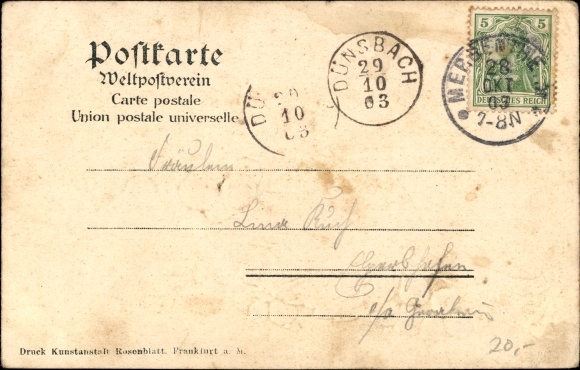 Postkarte
Weltpostverein
Carte postale
Union postale universelle
DÜNSBACH
29
10
03
DÜ
10
03
5 5
DEUTSCHES REICH
MERGENTHEIM
28
OKT
03
7-8N
Fräulein
Lina
20,-
Druck Kunstanstalt Rosenblatt. Frankfurt a. M.